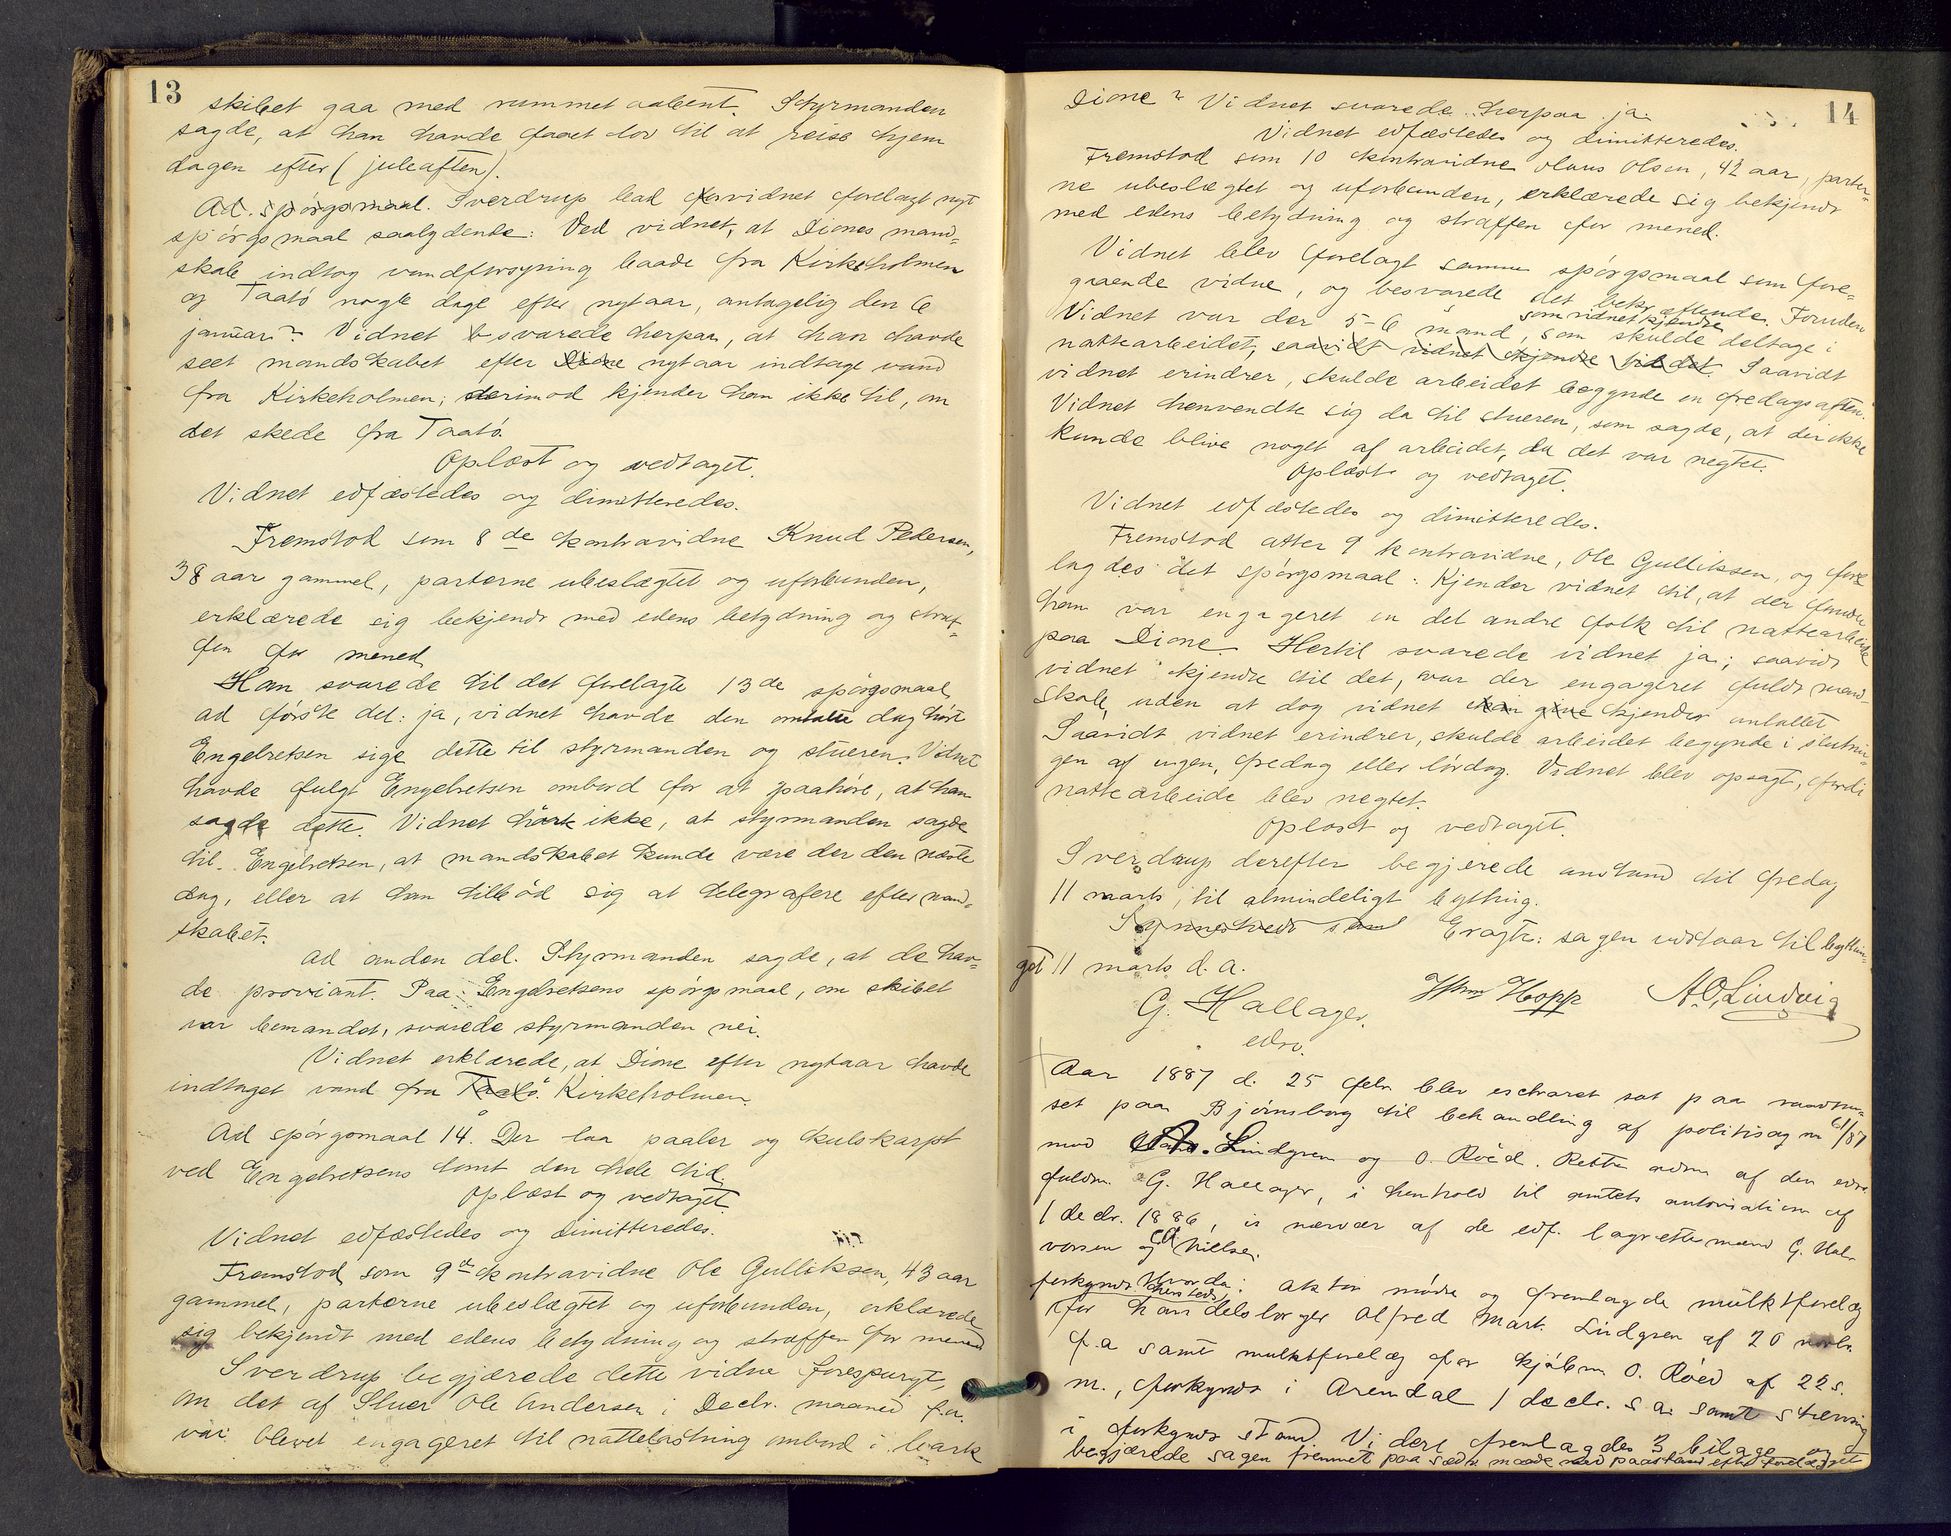 13
skibet gaa med rummet aabent. Styrmanden
sagde, at han havde faaet lov til at reise hjem
dagen efter (juleaften).
Ad. spörgsmaal. Sverdrup lod vidnet forelagt nyt
spörgsmaal saalydende: Ved vidnet, at Diones mand-
skab indtog vandforsyning baade fra Kirkeholmen
og Taatö nogle dage efter nytaar, antagelig den 6
januar? Vidnet besvarede herpaa, at han havde
seet mandskabet efter Dione nytaar indtage vand
fra Kirkeholmen; derimod kjender han ikke til, om
det skede fra Taatö.
Oplæst og vedtaget.
Vidnet edfæstedes og dimitteredes.
Fremstod som 8de kontravidne Knud Pedersen,
38 aar gammel, parterne ubeslægtet og uforbunden,
erklærede sig bekjendt med edens betydning og straf-
fen for mened
Han svarede til det forelagte 13de spörgsmaal
ad förste del: ja, vidnet havde den omtalte dag hört
Engelretsen sige dette til styrmanden og stueren. Vidnet
havde fulgt Engelretsen ombord for at paahöre, at han
sagde dette. Vidnet hörte ikke, at styrmanden sagde
til Engelretsen, at mandskabet kunde være der den næste
dag, eller at han tilböd sig at telegrafere efter mand-
skabet.
ad anden del. Styrmanden sagde, at de hav-
de proviant. Paa Engelretsens spörgsmaal, om skibet
var bemandet, svarede styrmanden nei.
Vidnet erklærede, at Dione efter nytaar havde
indtaget vand fra Taatö. Kirkeholmen.
Ad spörgsmaal 14. Der laa paaler og kulskarpt
ved Engelretsens tomt den hele tid.
Oplæst og vedtaget
Vidnet edfæstedes og dimitteredes.
Fremstod som 9de kontravidne Ole Gulliksen, 43 aar
gammel, parterne ubeslægtet og uforbunden, erklærede
sig bekjendt med edens betydning og straffen for mened
Sverdrup begjærede dette vidne forespurgt,
om det af Stuer Ole Andersen i Decbr. maaned f.a.
var blevet engageret til nattelastning ombord i bark
14
Dione? Vidnet svarede herpaa ja.
Vidnet edfæstedes og dimitteredes.
Fremstod som 10 kontravidne Olaus Olsen, 42 aar, parter-
ne ubeslægtet og uforbunden, erklærede sig bekjendt
med edens betydning og straffen for mened.
Vidnet blev forelagt samme spörgsmaal som fore-
gaaende vidne, og besvarede det bekræftende. Foruden
Vidnet var der 5-6 mand, som vidnet kjendte, som skulde deltage i
nattearbeidet, saavidt vidnet kjendte til det. Saavidt
vidnet erindrer, skulde arbeidet begynde en fredags aften.
Vidnet henvendte sig da til stueren, som sagde, at der ikke
kunde blive noget af arbeidet, da det var negtet.
Oplæst og vedtaget.
Vidnet edfæstedes og dimitteredes.
Fremstod atter 9 kontravidne, Ole Gulliksen, og fore-
lagdes det spörgsmaal: Kjender vidnet til, at der foruden
ham var engageret en del andre folk til nattearbeide
paa Dione. Hertil svarede vidnet ja; saavidt
vidnet kjendte til det, var der engageret fuldt mand-
skab, uden at dog vidnet kjender antallet
Saavidt vidnet erindrer, skulde arbeidet begynde i slutnin-
gen af ugen, fredag eller lördag. Vidnet blev opsagt, fordi
nattearbeide blev negtet.
Oplæst og vedtaget.
Sverdrup derefter begjerede anstand til fredag
11 marts, til almindeligt bytting.
Eragtet: sagen udstaar til byttin-
get 11 marts d. a.
G. Hallager. Hopp A.O. Lindvig
edsv.
Aar 1887 d. 25 febr blev extraret sat paa raadhu-
set paa Bjørnsborg til behandling af politisag nr 61/87
mod A. Lindgren og O. Röed. Retten adm af den edsv.
fuldm. G. Hallager, i henhold til amtets autorisation af
1 decbr. 1886, i nærvær af de edf. lagrettemænd G. Hal-
vorsen og Nielsen.
Hvorda: aktor mödte og fremlagde mulktforelæg
forkyndt
for handelsborger Alfred Mart. Lindgren af 20 novbr.
f.a samt mulktforelæg for kjöbm. O. Röed af 22 s.
m., forkyndt i Arendal 1 decbr. s a. samt stevning
i forkyndt stand Videre fremlagdes 3 bilage og
begjærede sagen fremmet paa sædv maade med paastand efter forelægget